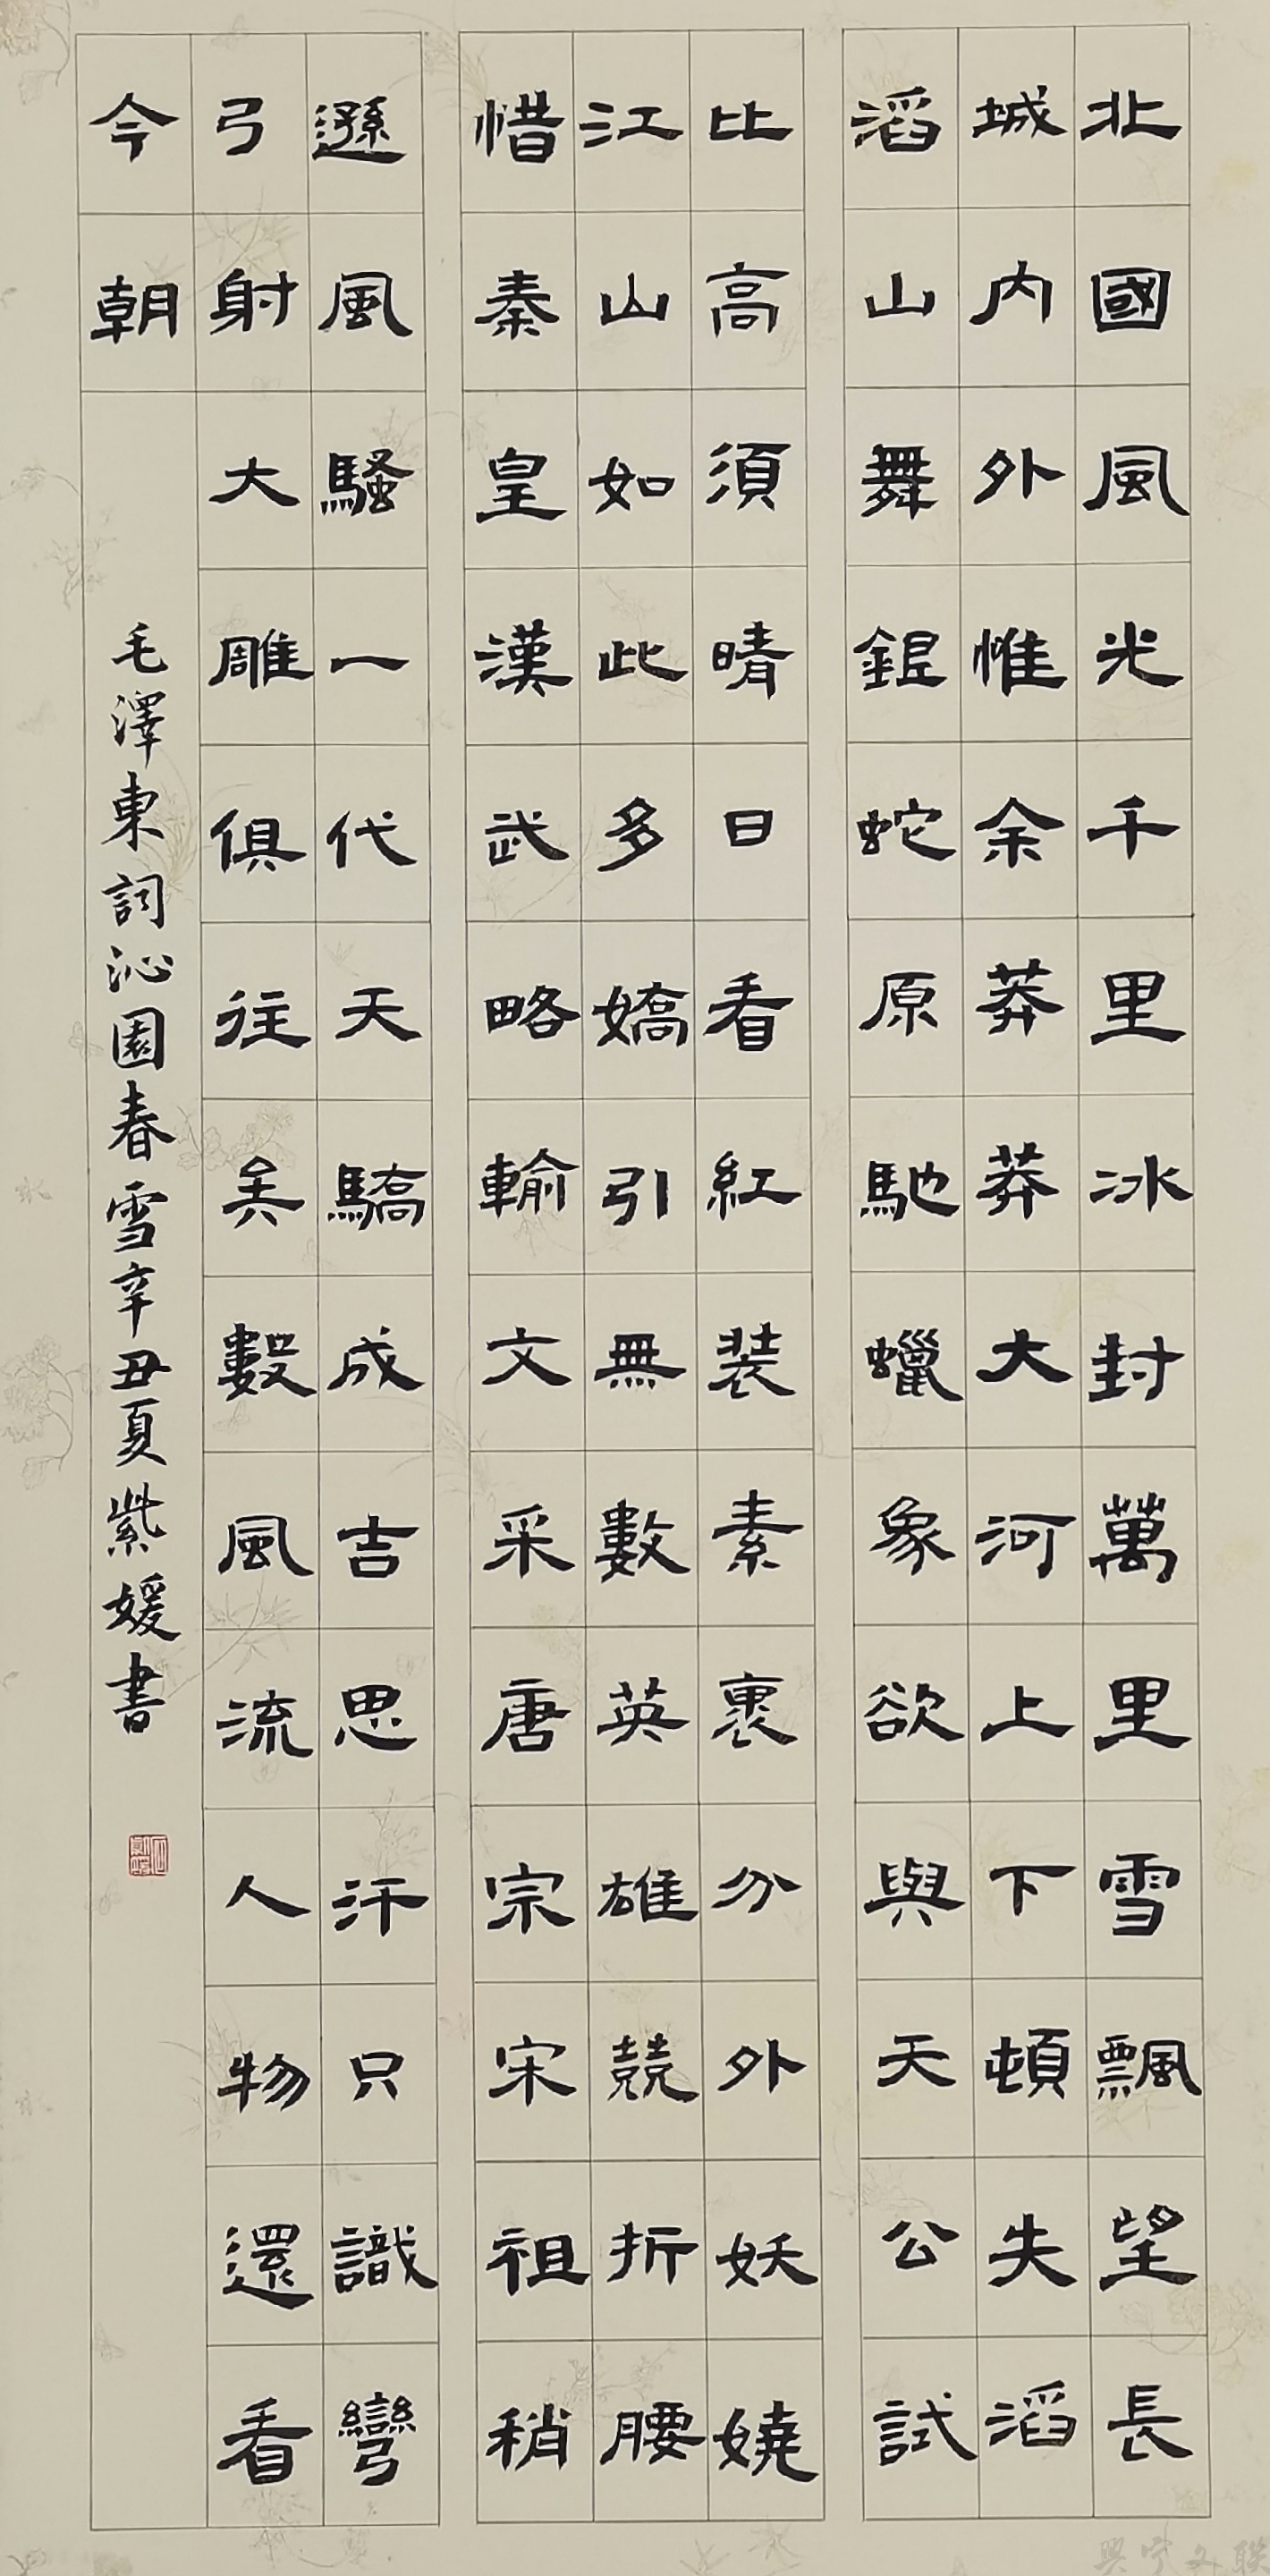 北國風光千里冰封萬里雪飄望長
城内外惟余莽莽大河上下頓失滔
滔山舞銀蛇原馳蠟象欲與天公試
比高須晴日看紅裝素裹分外妖嬈
江山如此多嬌引無數英雄競折腰
惜秦皇漢武略輸文采唐宗宋祖稍
遜風騷一代天驕成吉思汗只識彎
弓射大雕俱往矣數風流人物還看
今朝
毛澤東詞沁園春雪辛丑夏紫媛書
興宁文聯